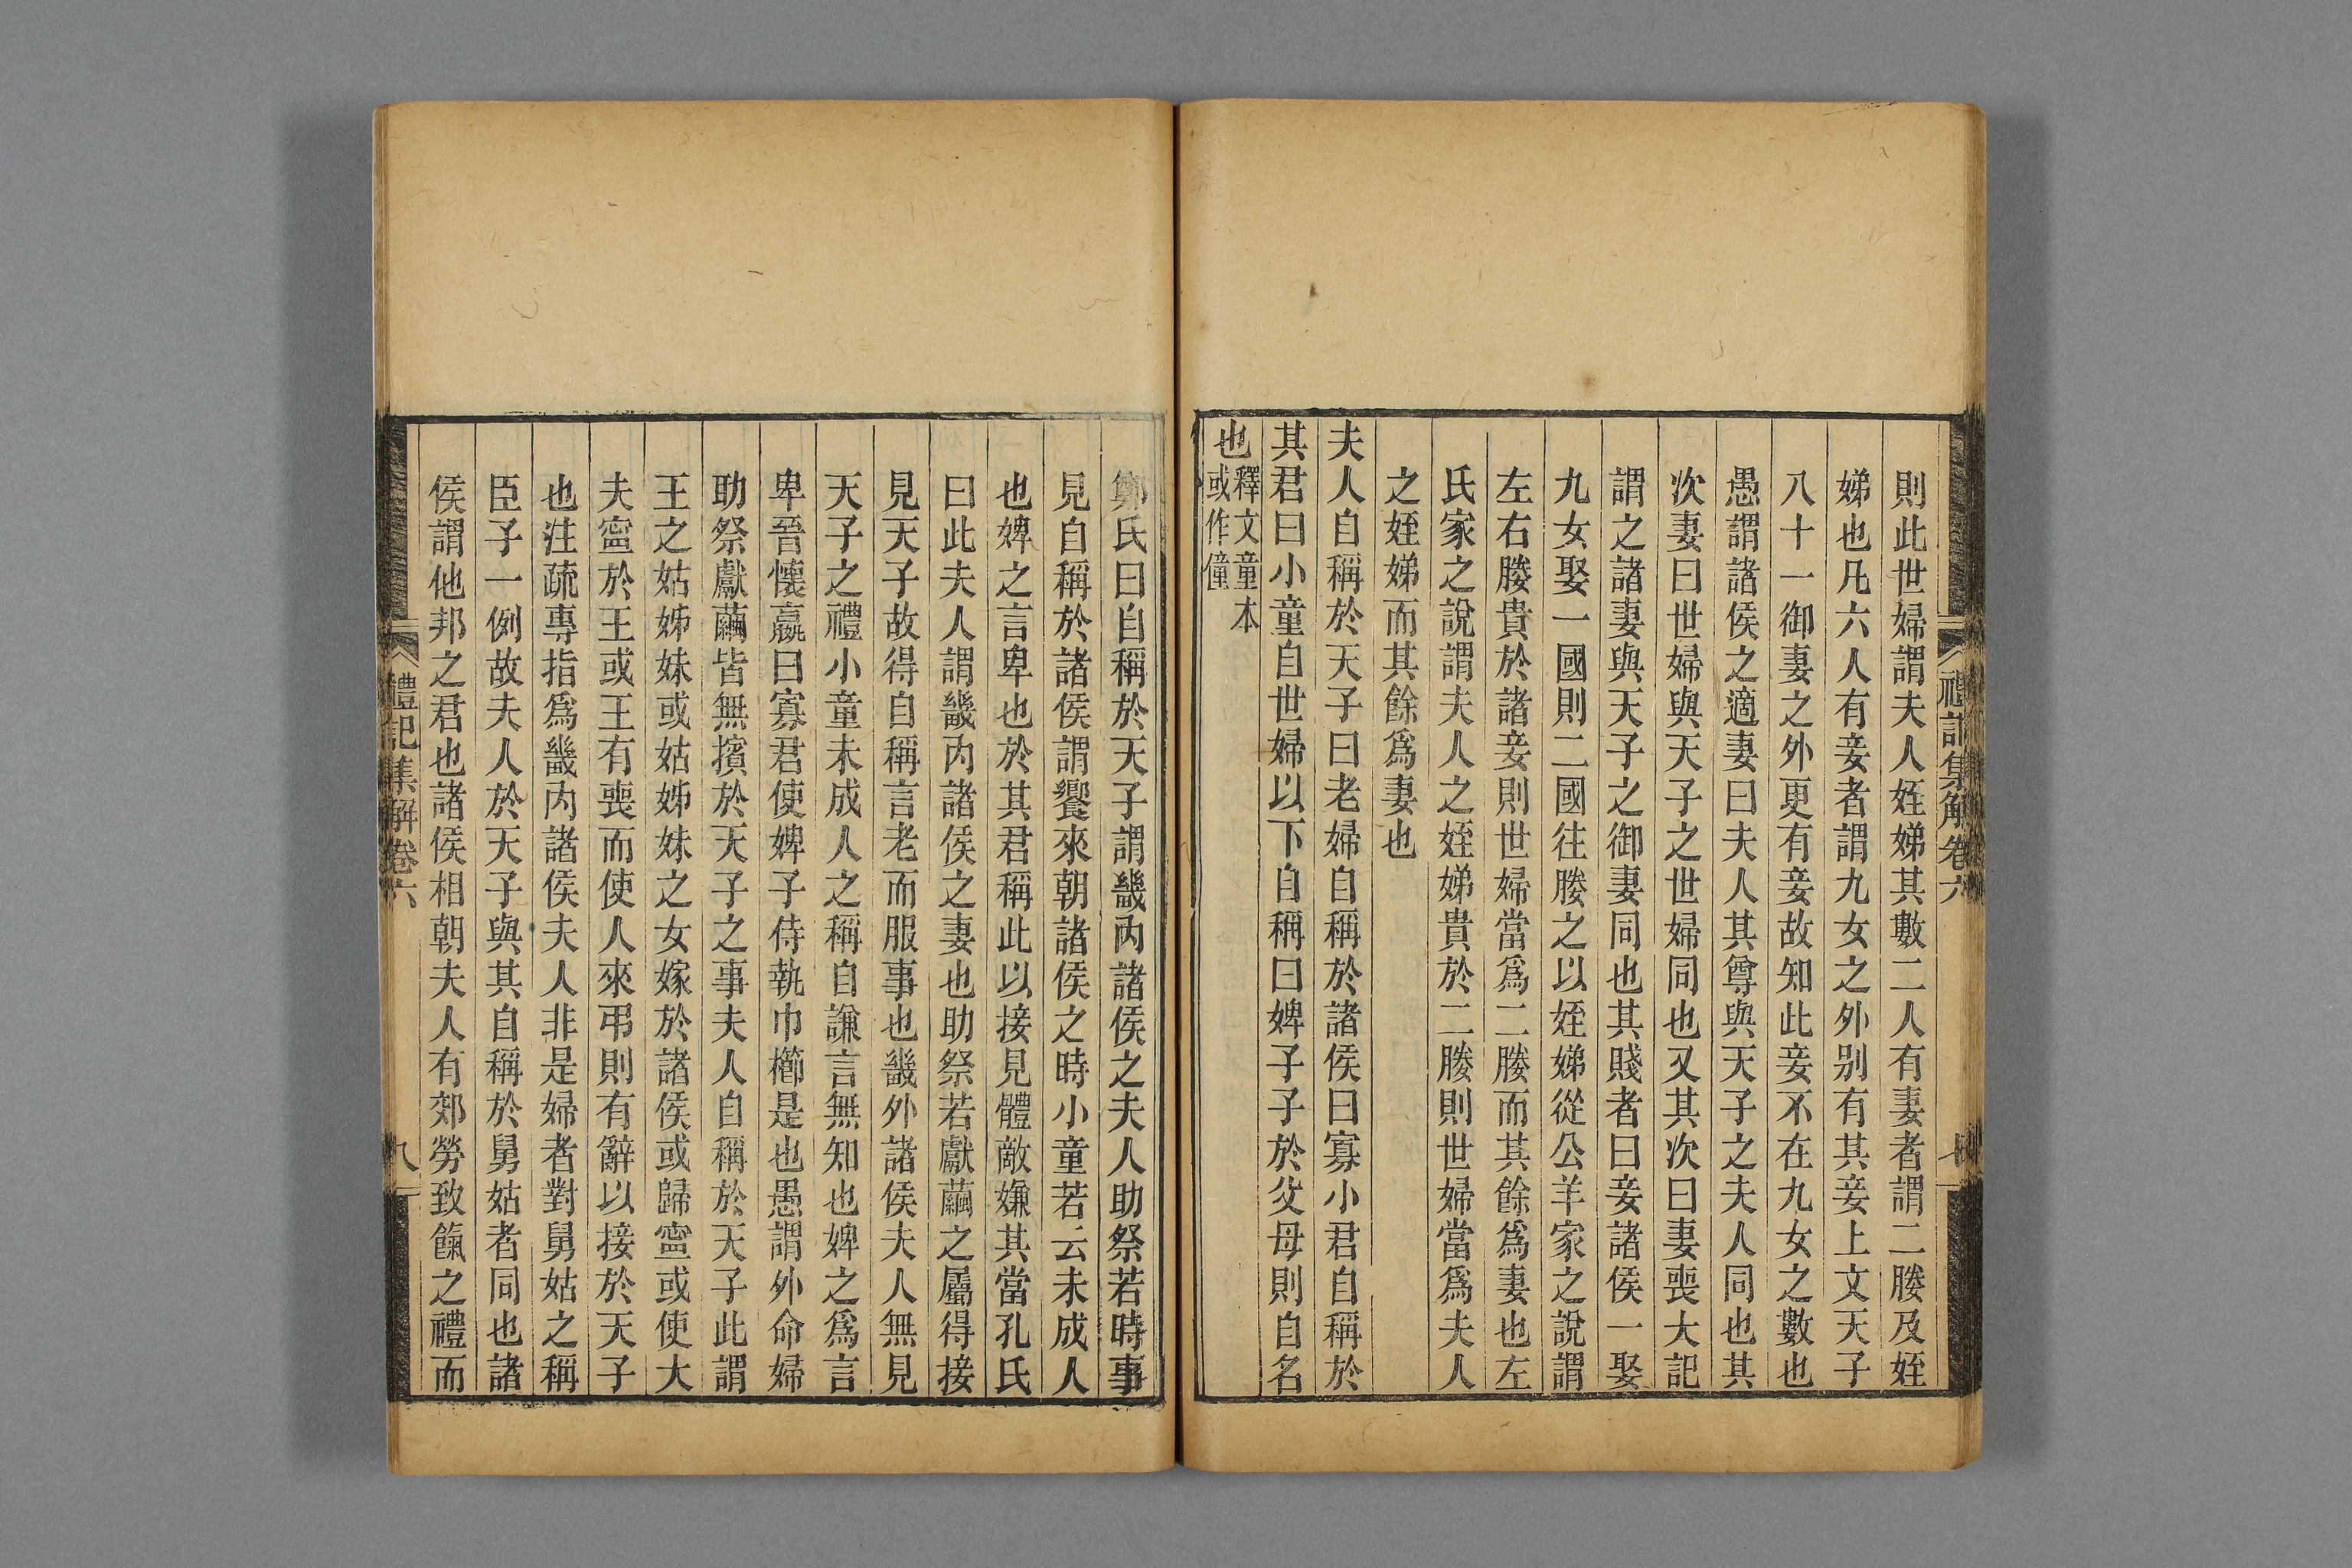 禮記集解卷六
七
則此世婦謂夫人姪娣其數二人有妻者謂二媵及姪
娣也凡六人有妾者謂九女之外别有其妾上文天子
八十一御妻之外更有妾故知此妾不在九女之數也
愚謂諸侯之適妻曰夫人其尊與天子之夫人同也其
次妻曰世婦與天子之世婦同也又其次曰妻喪大記
謂之諸妻與天子之御妻同也其賤者曰妾諸侯一娶
九女娶一國則二國往媵之以姪娣從公羊家之說謂
左右媵貴於諸妾則世婦當爲二媵而其餘爲妻也左
氏家之說謂夫人之姪娣貴於二媵則世婦當爲夫人
之姪娣而其餘爲妻也
夫人自稱於天子曰老婦自稱於諸侯曰寡小君自稱於
其君曰小童自世婦以下自稱曰婢子子於父母則自名
也釋文童本
或作僮
鄭氏曰自稱於天子謂畿內諸侯之夫人助祭若時事
見自稱於諸侯謂饗來朝諸侯之時小童若云未成人
也婢之言卑也於其君稱此以接見體敵嫌其當孔氏
曰此夫人謂畿內諸侯之妻也助祭若獻繭之屬得接
見天子故得自稱言老而服事也畿外諸侯夫人無見
天子之禮小童未成人之稱自謙言無知也婢之爲言
卑晉懷嬴曰寡君使婢子侍執巾櫛是也愚謂外命婦
助祭獻繭皆無擯於天子之事夫人自稱於天子此謂
王之姑姊妹或姑姊妹之女嫁於諸侯或歸寍或使大
夫寍於王或王有喪而使人來弔則有辭以接於天子
也注疏專指爲畿內諸侯夫人非是婦者對舅姑之稱
臣子一例故夫人於天子與其自稱於舅姑者同也諸
侯謂他邦之君也諸侯相朝夫人有郊勞致餼之禮而
禮記集解卷六
八